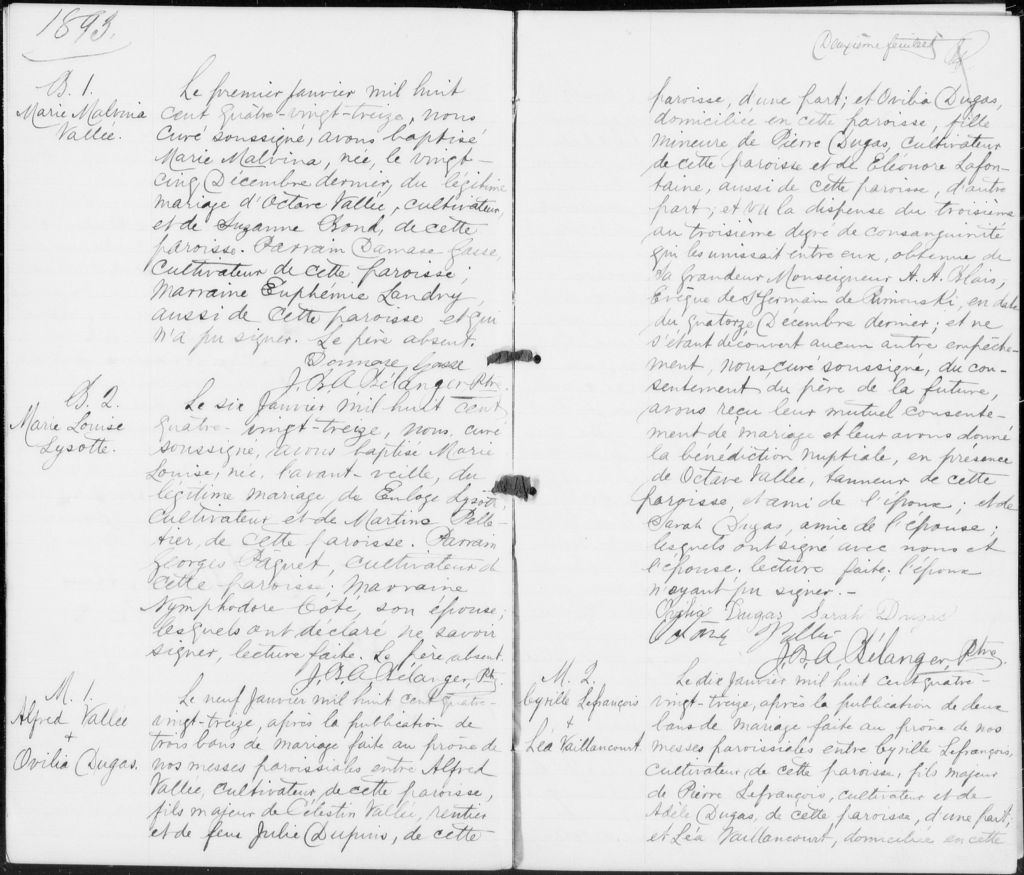 1893.
B. 1.
Marie Malvina
Vallée.
Le premier Janvier mil huit
cent quatre-vingt-treize, nous
curé soussigné, avons baptisé
Marie Malvina, née, le vingt-
cinq Décembre dernier, du légitime
mariage d'Octave Vallée, cultivateur,
et de Suzanne Rond, de cette
paroisse. Parrain Damase Gasse,
cultivateur de cette paroisse;
Marraine Euphémie Landry,
aussi de cette paroisse et qui
n'a pu signer. Le père absent.
Dommase Gasse
J.B.A. Bélanger, Ptre.
B. 2.
Marie Louise
Lysotte.
Le six Janvier mil huit cent
quatre-vingt-treize, nous, curé
soussigné, avons baptisé Marie
Louise, née, l'avant-veille, du
légitime mariage, de Euloge Lysotte,
cultivateur et de Martine Pelle-
tier, de cette paroisse. Parrain
Georges Pâquet, cultivateur d
cette paroisse; Marraine
Nymphodore Côté, son épouse;
lesquels ont déclaré ne savoir
signer, lecture faite. Le père absent.
J.B.A. Bélanger, Ptr.
M. 1.
Alfred Vallée
+
Ovilia Dugas.
Le neuf Janvier mil huit cent quatre-
vingt-treize, après la publication de
trois bans de mariage faite au prône de
nos messes paroissiales entre Alfred
Vallée, cultivateur, de cette paroisse,
fils majeur de Célestin Vallée, rentier
et de feue Julie Dupuis, de cette
Deuxième feuillet
paroisse, d'une part; et Ovilia Dugas,
domiciliée en cette paroisse, fille
mineure de Pierre Dugas, cultivateur
de cette paroisse et de Eléonore Lafon-
taine, aussi de cette paroisse, d'autre
part; et vu la dispense du troisième
au troisième degré de consanguinité
qui les unissait entre eux, obtenue de
Sa Grandeur Monseigneur A. A. Blais,
Evêque de St Germain de Rimouski, en date
du quatorze Décembre dernier; et ne
s'étant découvert aucun autre empêche-
ment, nous curé soussigné, du con-
sentement du père de la future,
avons reçu leur mutuel consente-
ment de mariage et leur avons donné
la bénédiction nuptiale, en présence
de Octave Vallée, tanneur de cette
paroisse, et ami de l'époux; et de
Sarah Dugas, amie de l'épouse;
lesquels ont signé avec nous et
l'épouse, lecture faite; l'époux
n'ayant pu signer.-
Dugas Sarah Dugas
Octave Vallée
J.B.A. Bélanger, Ptre.
M. 2.
Cyrille Lefrançois
+
Léa Vaillancourt.
Le dix Janvier mil huit cent quatre-
vingt-treize, après la publication de deux
bans de mariage faite au prône de nos
messes paroissiales entre Cyrille Lefrançois,
cultivateur, de cette paroisse, fils majeur
de Pierre Lefrançois, cultivateur et de
Adèle Dugas, de cette paroisse, d'une part;
et Léa Vaillancourt, domiciliée en cette